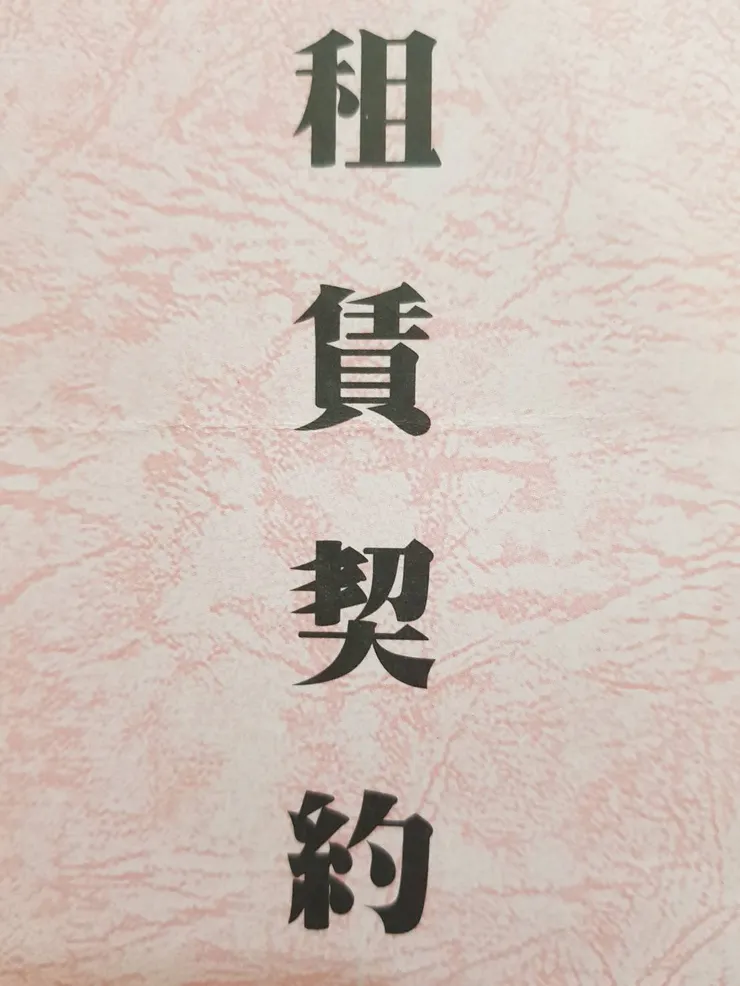 租賃契約